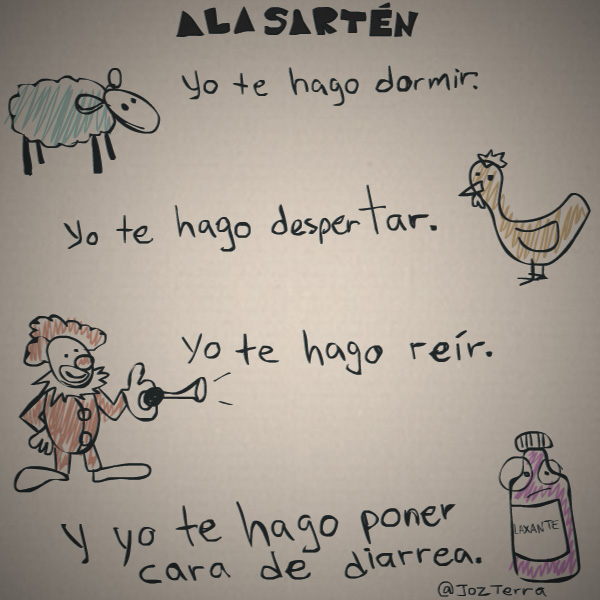 A LA SARTÉN
Yo te hago dormir.
Yo te hago despertar.
Yo te hago reír.
Y yo te hago poner
cara de diarrea.
LAXANTE
@JozTerra